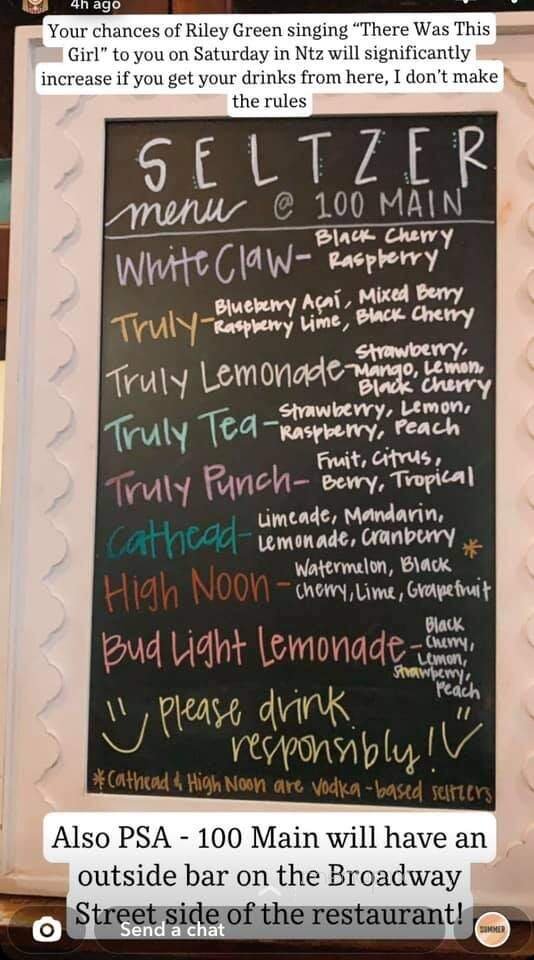 4h ago
Your chances of Riley Green singing “There Was This
Girl” to you on Saturday in Ntz will significantly
increase if you get your drinks from here, I don’t make
the rules
SELTZER
menu @ 100 MAIN
White Claw- Black Cherry
Raspberry
Truly- Blueberry Açaí, Mixed Berry
Raspberry Lime, Black Cherry
Truly Lemonade- Strawberry,
Mango, Lemon,
Black Cherry
Truly Tea- Strawberry, Lemon,
Raspberry, Peach
Truly Punch- Fruit, Citrus,
Berry, Tropical
Cathead- Limeade, Mandarin,
Lemonade, Cranberry *
High Noon- Watermelon, Black
Cherry, Lime, Grapefruit
Bud Light Lemonade- Black
Cherry,
Lemon,
Strawberry,
Peach
Please drink
responsibly!
*Cathead & High Noon are vodka-based seltzers
Also PSA - 100 Main will have an
outside bar on the Broadway
Street side of the restaurant!
Send a chat
SUMMER